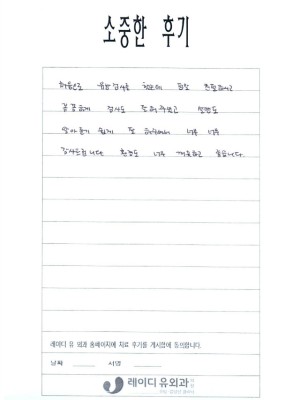 소중한 후기
처음으로 유방검사를 했는데 정말 친절하시고
꼼꼼하게 검사도 잘 해주시고 설명도
알아듣기 쉽게 잘 해주셔서 너무 너무
감사드립니다. 환경도 너무 깨끗하고 좋습니다.
레이디 유 외과 홈페이지에 치료 후기를 게시함에 동의합니다.
날짜 서명
레이디유외과